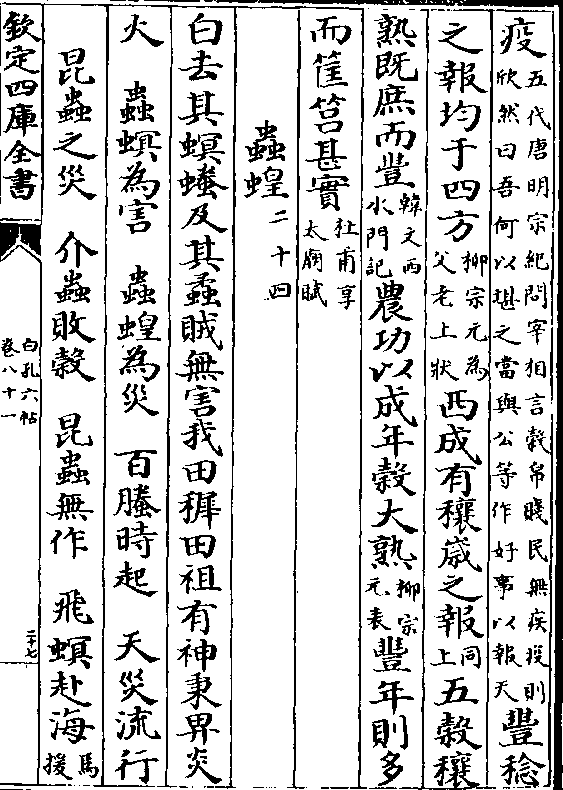 疫五代唐明宗紀問宰相言穀帛賤民無疾疫則欣然曰吾何以堪之當與公等作好事以報天豐稔
之報均于四方柳宗元為父老上狀西成有穰歲之報同上五穀穰
熟既庶而豐韓文西水門記農功以成年穀大熟柳宗元表豐年則多
而筐筥甚實杜甫享太廟賦
蟲蝗二十四
白去其螟螣及其蟊賊無害我田穉田祖有神秉畀炎
火　蟲螟為害　蟲蝗為災　百螣時起　天災流行
昆蟲之災　介蟲敗穀　昆蟲無作　飛螟赴海馬援
欽定四庫全書
白孔六帖
卷八十一
二十七